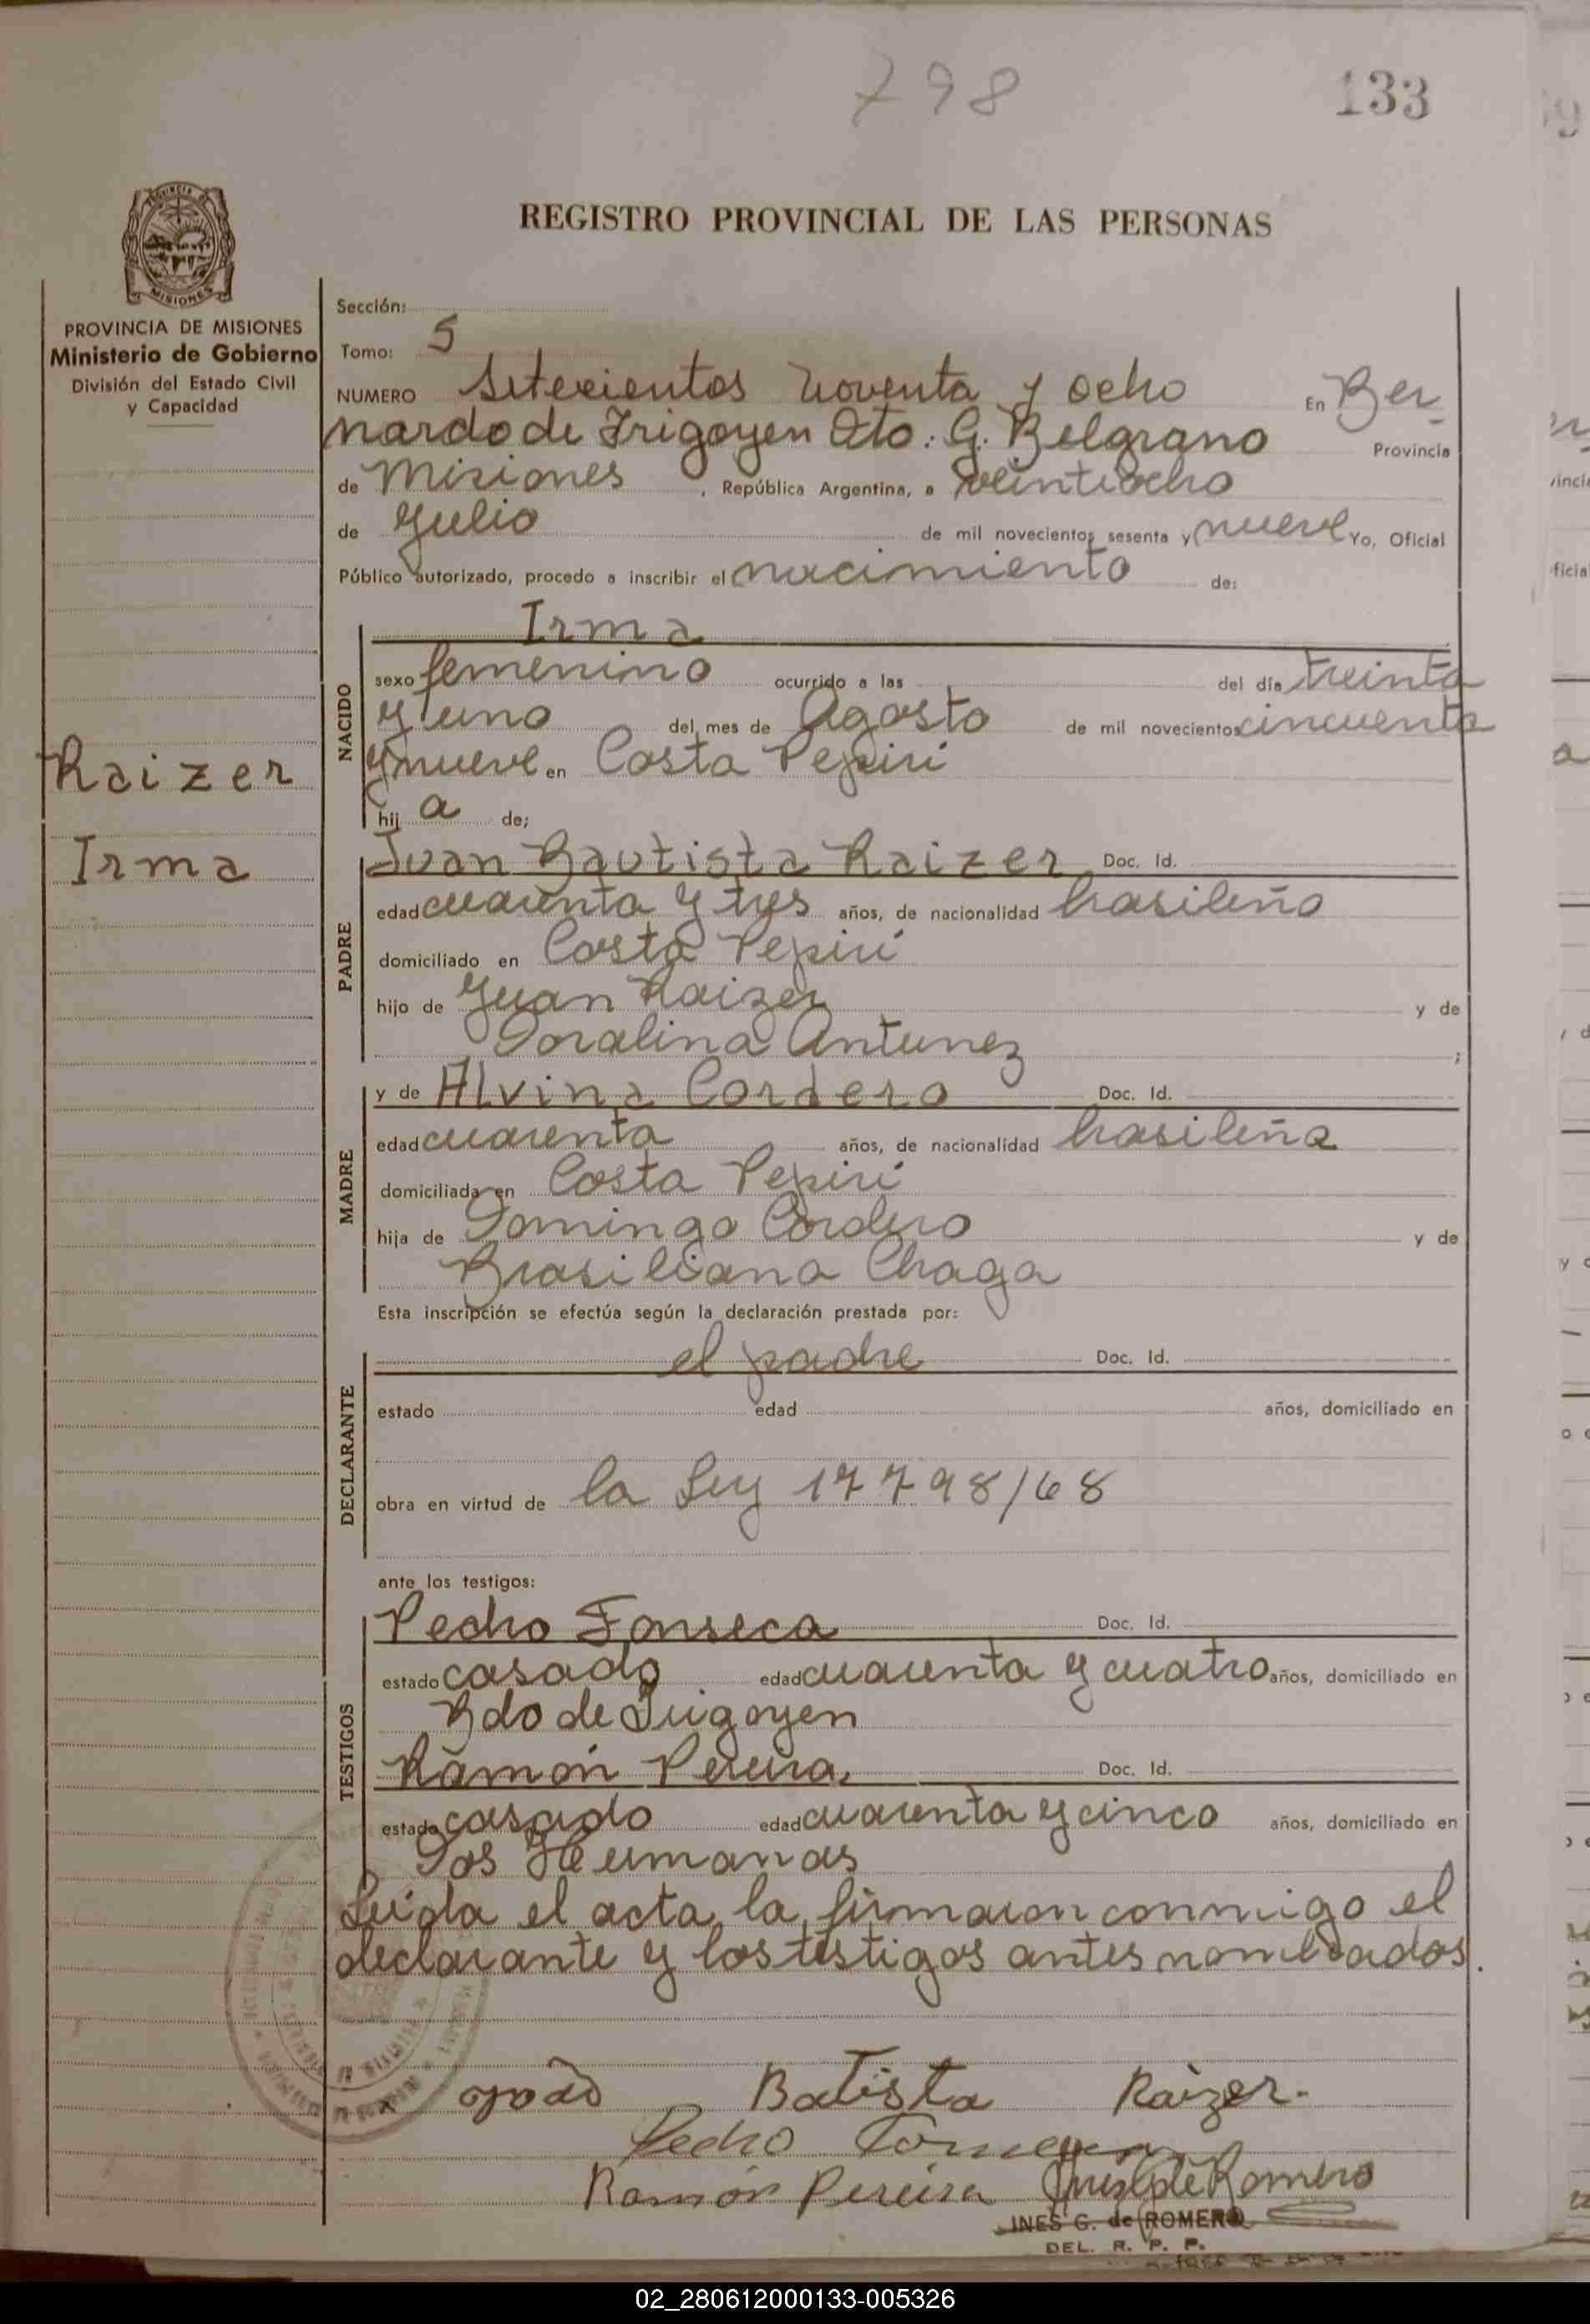 798
133
REGISTRO PROVINCIAL DE LAS PERSONAS
MISIONES
PROVINCIA DE MISIONES
Ministerio de Gobierno
División del Estado Civil
y Capacidad
Raizer
Irma
Sección:
Tomo: 5
NUMERO Setecientos noventa y ocho En Ber-
nardo de Irigoyen Dto: G. Belgrano Provincia
de Misiones, República Argentina, a veintiocho
de Julio de mil novecientos sesenta y nueve Yo, Oficial
Público autorizado, procedo a inscribir el nacimiento de:
NACIDO
Irma
sexo femenino ocurrido a las del día treinta
y uno del mes de Agosto de mil novecientos cincuenta
y nueve en Costa Pepirí
hij a de;
PADRE
Juan Bautista Raizer Doc. Id.
edad cuarenta y tres años, de nacionalidad brasileño
domiciliado en Costa Pepirí
hijo de Juan Raizer y de
Doralina Antunez ;
MADRE
y de Alvina Cordero Doc. Id.
edad cuarenta años, de nacionalidad brasileña
domiciliada en Costa Pepirí
hija de Domingo Cordero y de
Brasiliana Chaga
Esta inscripción se efectúa según la declaración prestada por:
DECLARANTE
el padre Doc. Id.
estado edad años, domiciliado en
obra en virtud de la Ley 17798/68
ante los testigos:
TESTIGOS
Pedro Fonseca Doc. Id.
estado casado edad cuarenta y cuatro años, domiciliado en
Bdo de Irigoyen
Ramón Pereira. Doc. Id.
estado casado edad cuarenta y cinco años, domiciliado en
Dos Hermanas
Leída el acta, la firmaron conmigo el
declarante y los testigos antes nombrados.
João Batista Raizer.
Pedro
Ramón Pereira Inés G de Romero
INES G. de ROMERO
DEL. R. P. P.
02_280612000133-005326